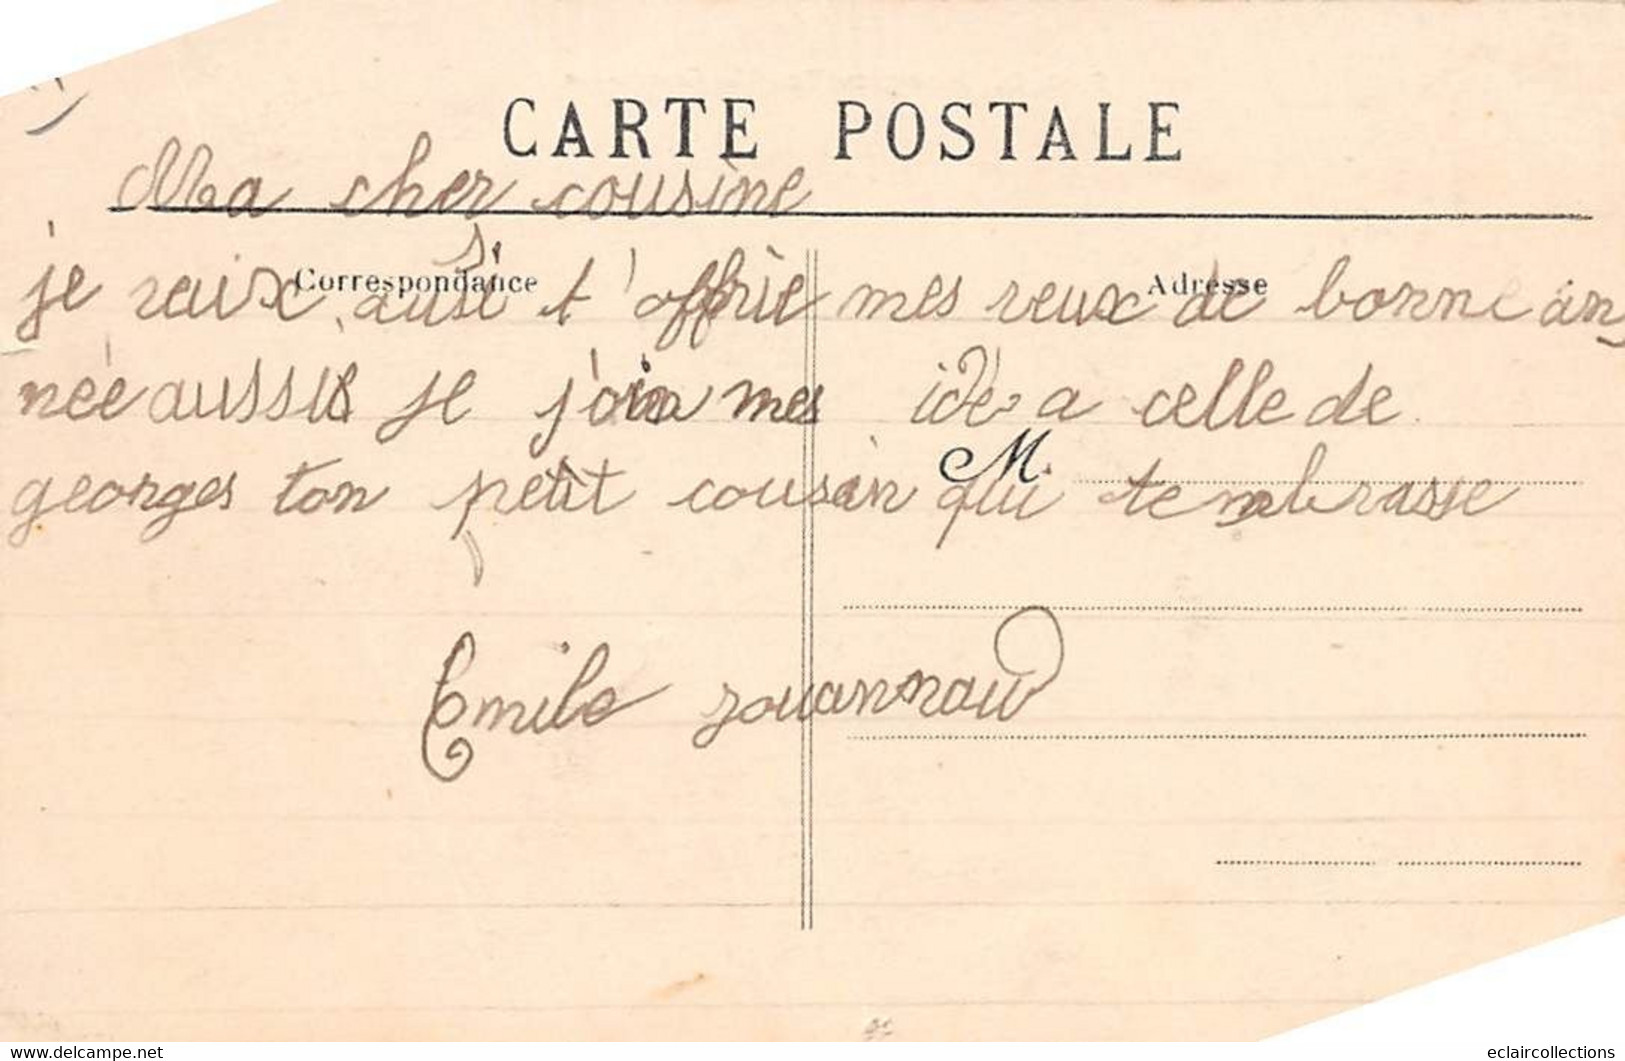 CARTE POSTALE
Ma cher cousine
Correspondance
Adresse
je vaix ausi t'offrie mes veux de bonne an
née aussi je join mes idé a celle de
M
georges ton petit cousin qui tembrasse
Emile jouannaud
eclaircollections